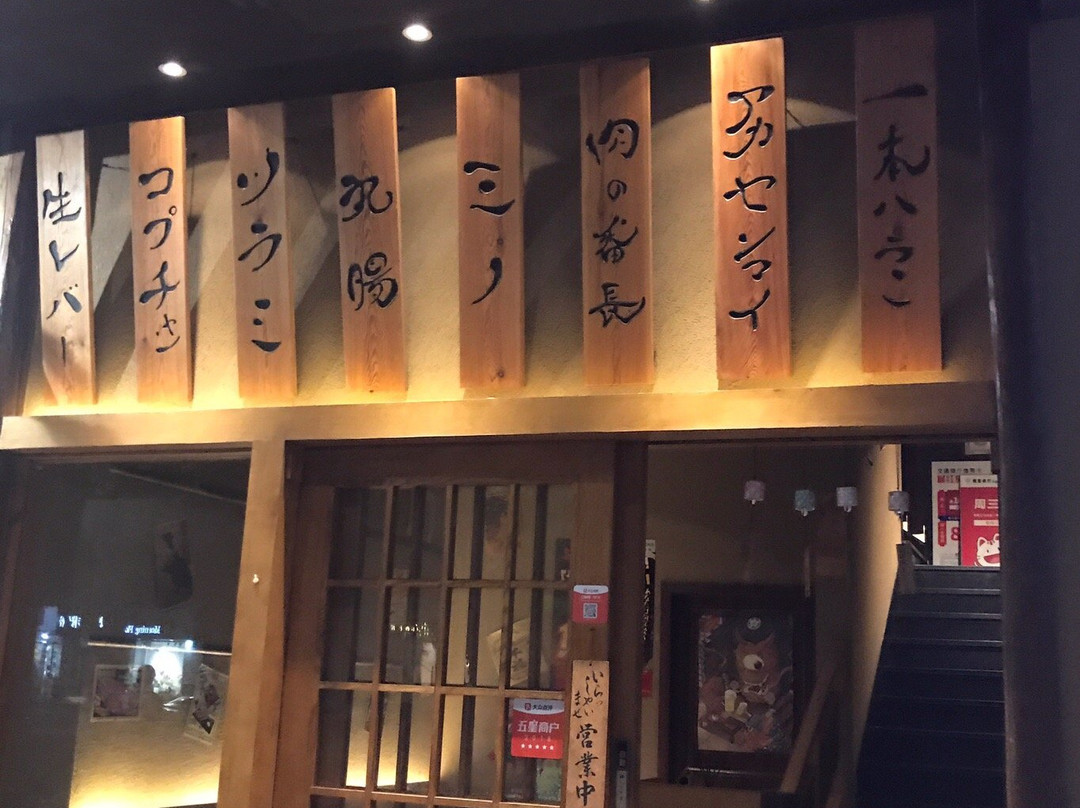 一本ハラミ
アカセンマイ
肉の番長
ミノ
丸腸
ツラミ
コプチャン
生レバー
いらっ
しゃい
ませ
営業中
大众点评
五星商户
★★★★★
周三
Morning Pla